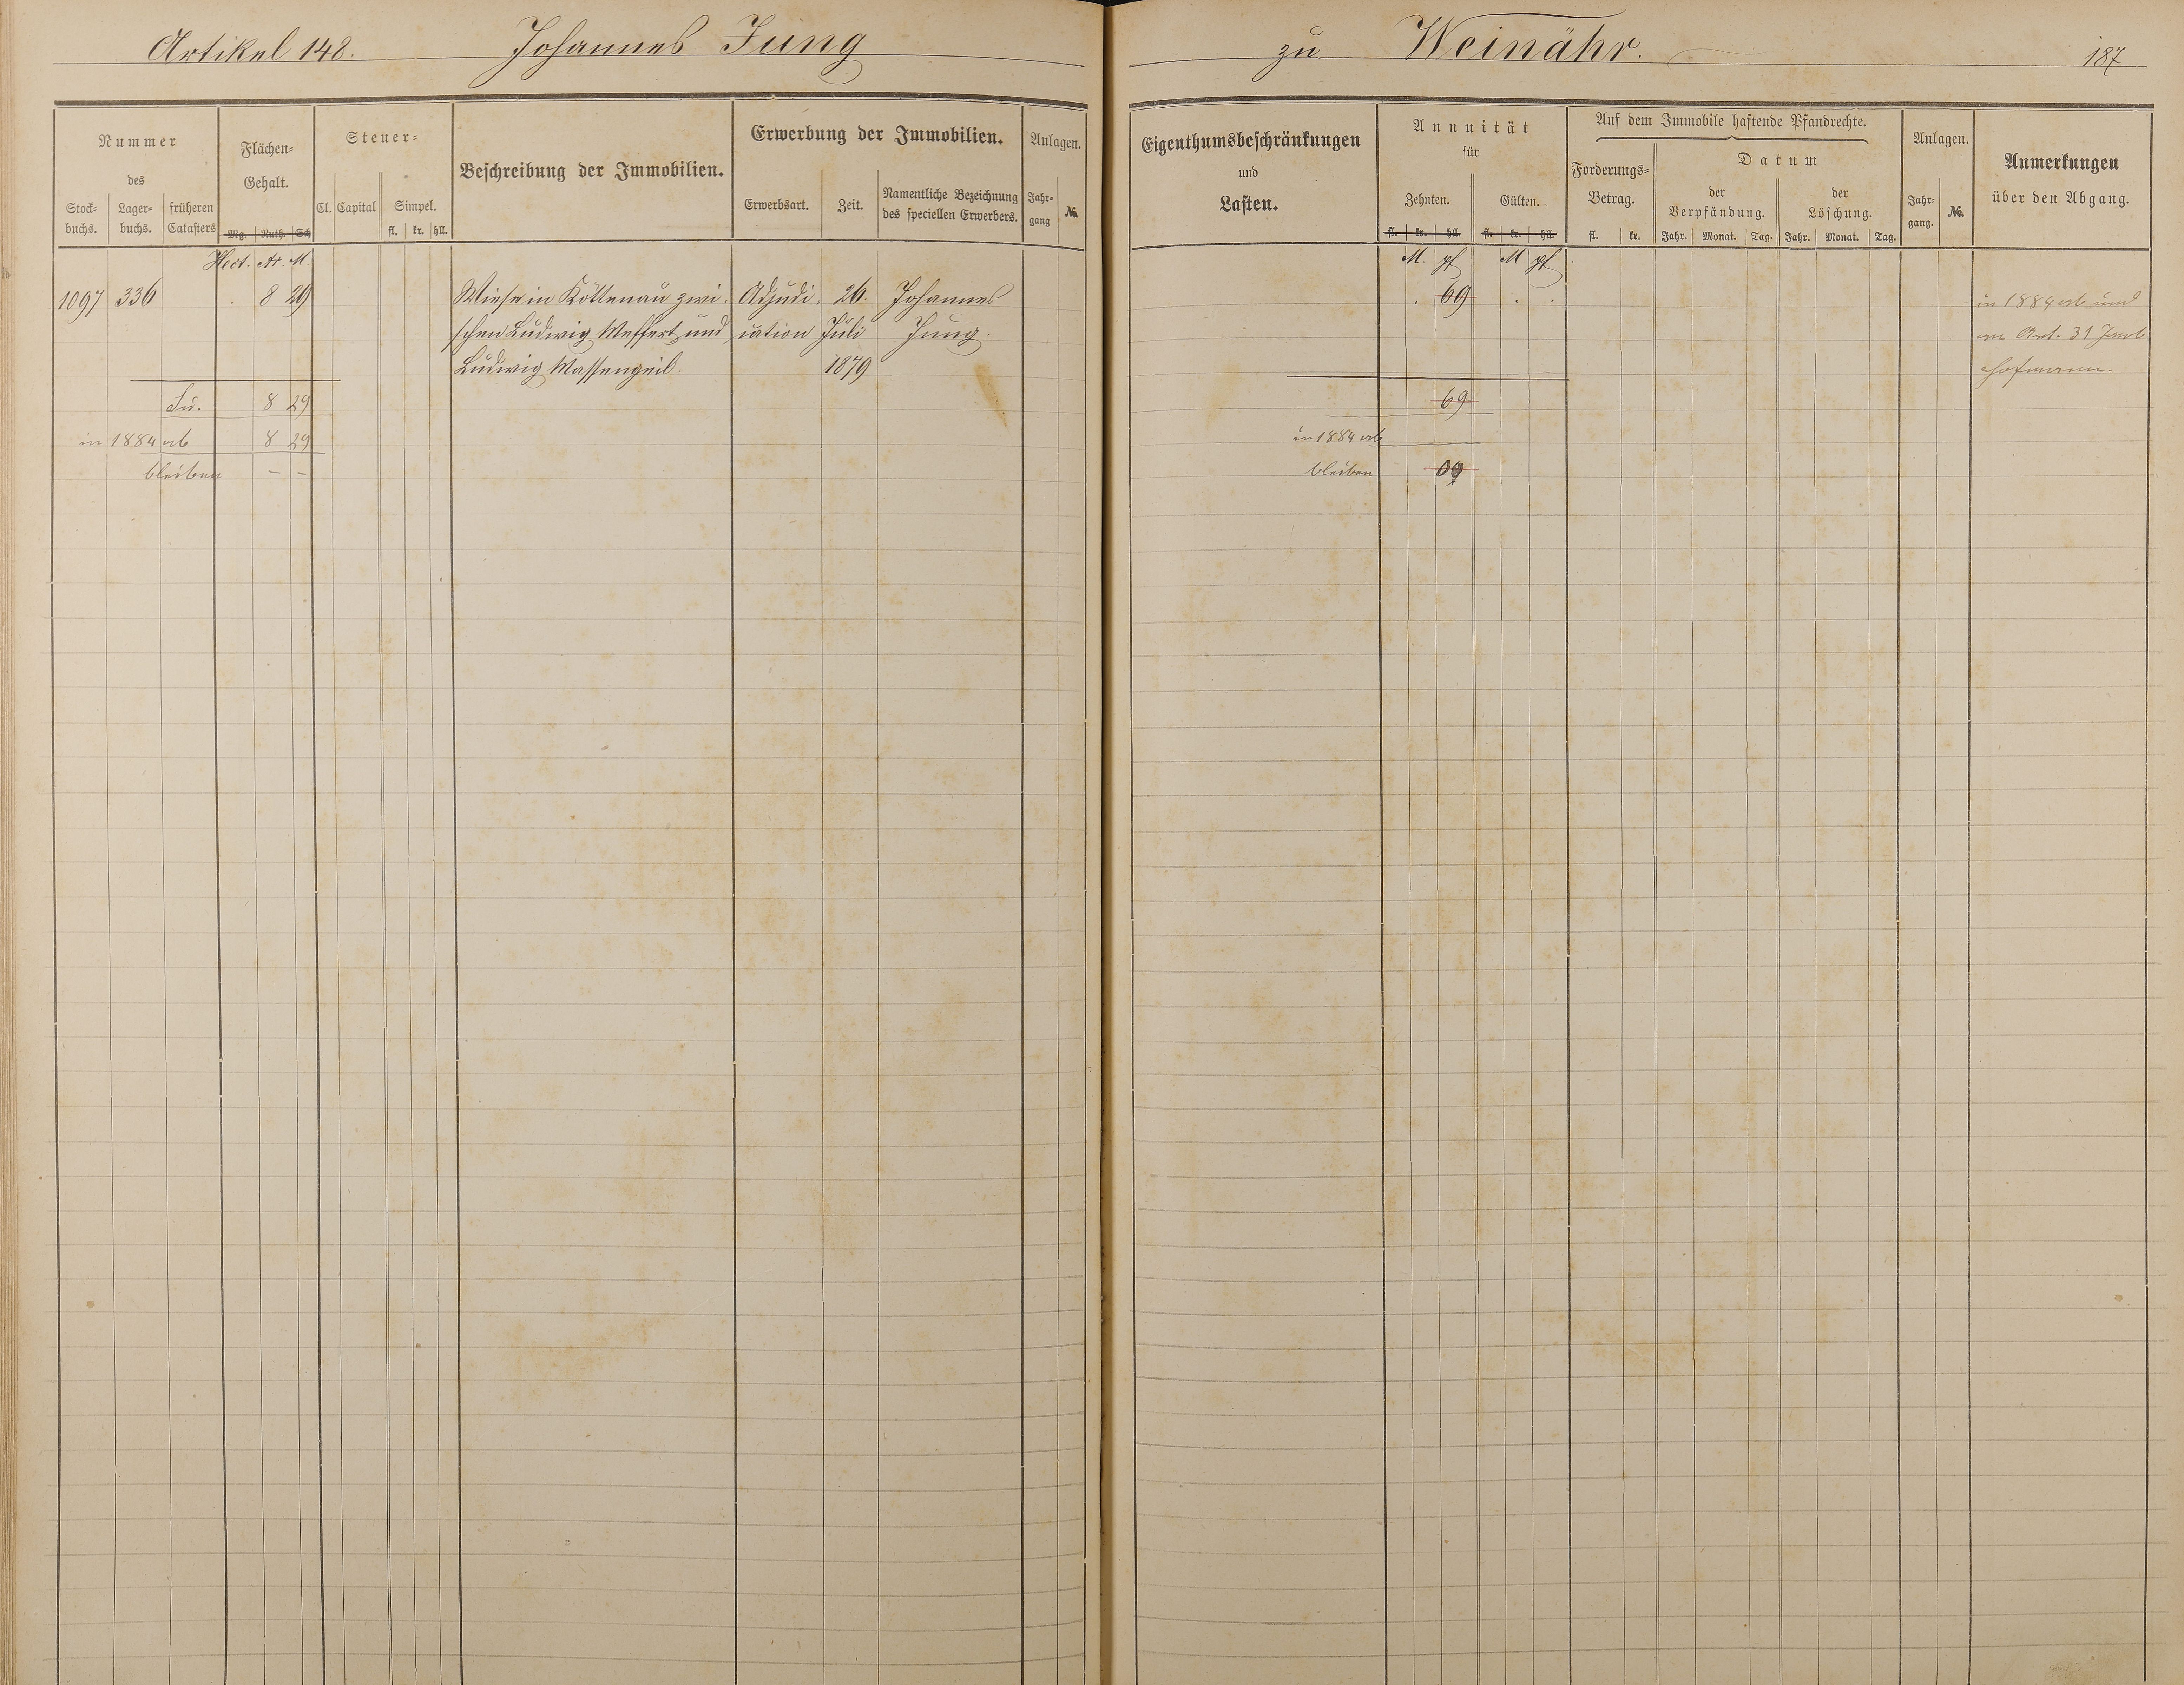 Artikel 148. Johannes Jung
Nummer
des
Stock-
buchs.
Lager-
buchs.
früheren
Catasters
Flächen-
Gehalt.
Mg. Ruth. Sch
Steuer-
Cl. Capital Simpel.
fl. kr. hll.
Beschreibung der Immobilien.
Erwerbung der Immobilien.
Erwerbsart. Zeit.
Namentliche Bezeichnung
des speciellen Erwerbers.
Anlagen.
Jahr-
gang
No.
Hect. Ar. M.
1097 336 . 8 29 Wiese in Köttenau zwi- Adjudi- 26. Johannes
schen Ludwig Meffert und cation Juli Jung.
Ludwig Massengeil. 1879
Su. 8 29
in 1884 ab 8 29
bleiben – –
zu Weinähr. 187
Eigenthumsbeschränkungen
und
Lasten.
Annuität
für
Zehnten. Gülten.
fl. kr. hll. fl. kr. hll.
Auf dem Immobile haftende Pfandrechte.
Forderungs-
Betrag.
fl. kr.
Datum
der
Verpfändung.
Jahr. Monat. Tag.
der
Löschung.
Jahr. Monat. Tag.
Anlagen.
Jahr-
gang.
No.
Anmerkungen
über den Abgang.
M. pf M pf
. 69 . . in 1884 ab und
an Art. 31 Jacob
Hofmann.
69
in 1884 ab
bleiben